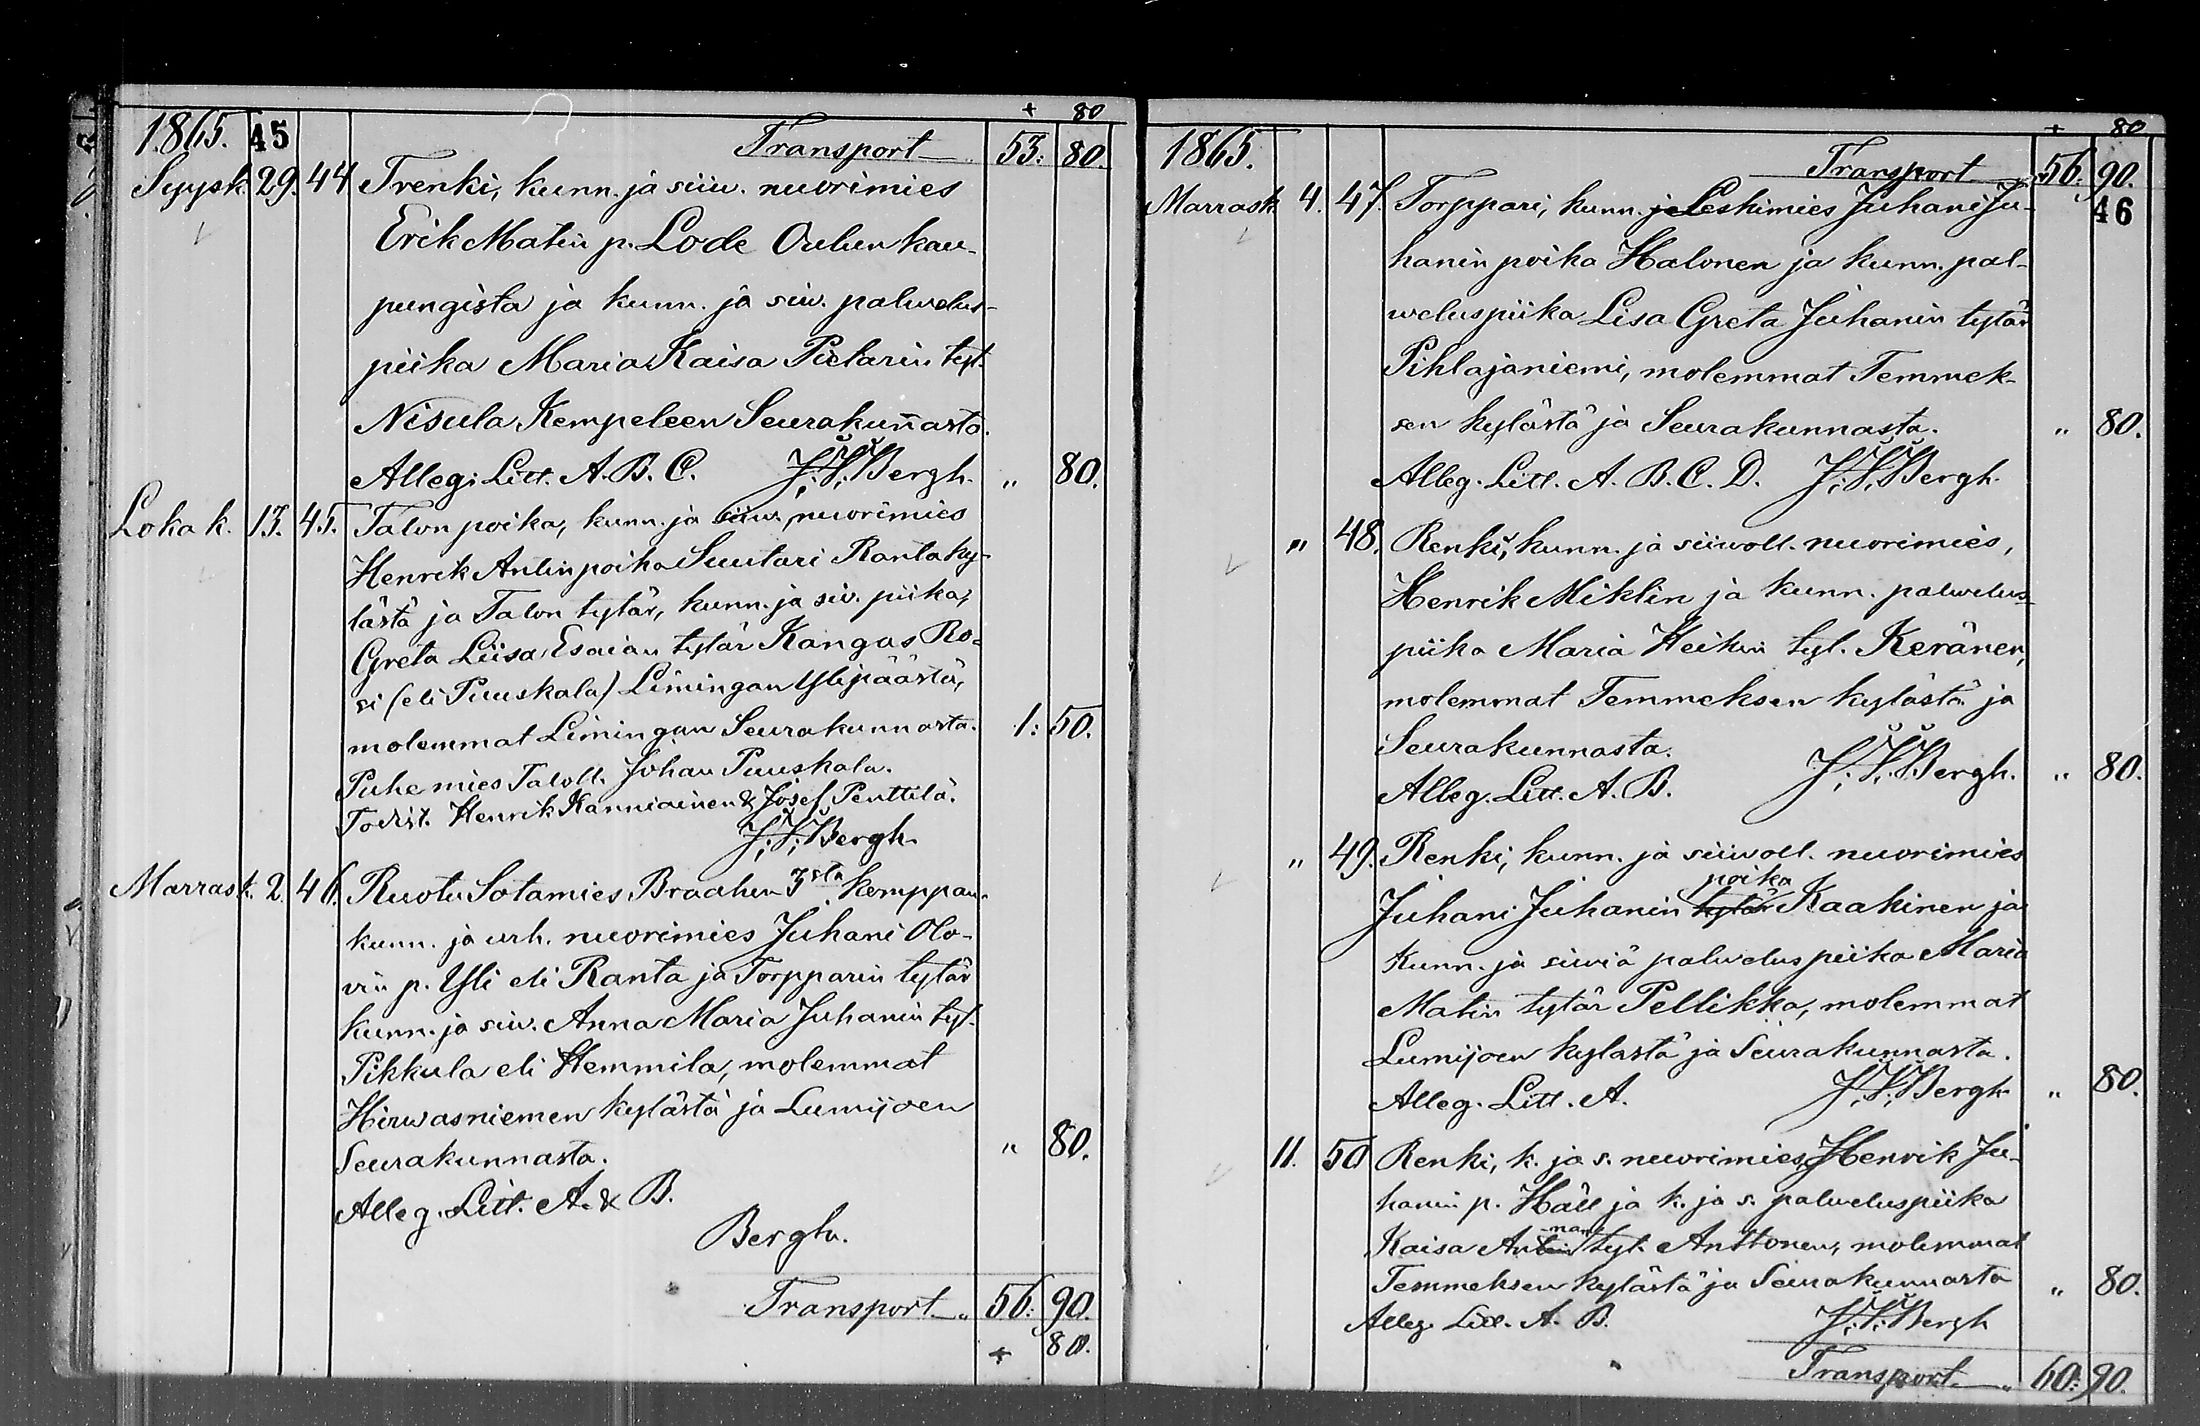 + 80
1865. 45 Transport 53: 80.
Syysk. 29. 44 Trenki, kunn. ja siiw. nuorimies
Erik Matin p. Lode Oulun kau-
pungista ja kunn. ja siw. palwelus-
piika Maria Kaisa Pietarin tyt.
Nisula Kempeleen Seurakun̄asta.
Alleg. Litt. A. B. C. J. V. Bergh. " 80.
Loka k. 13. 45. Talon poika, kunn. ja siiw. nuorimies
Henrik Antin poika Suutari Rantaky-
lästä ja Talon tytär, kunn. ja siv. piika,
Greta Liisa Esaian tytär Kangas Ro-
si (eli Puuskala) Limingan Ylipäästä,
molemmat Limingan Seurakunnasta. 1: 50.
Puhemies Taloll. Johan Puuskala.
Todist. Henrik Kanniainen & Josef Penttilä.
J. V. Bergh.
Marrask. 2. 46. Ruotu Sotamies Braahen 3sta komppan.
kunn. ja urh. nuorimies Juhani Olo-
vin p. Yli eli Ranta ja Torpparin tytär
kunn. ja siw. Anna Maria Juhanin tyt.
Pikkula eli Hemmila, molemmat
Hirwasniemen kylästä ja Lumijoen
Seurakunnasta. " 80.
Alleg. Litt. A. & B.
Bergh.
Transport 56: 90.
+ 80.
+ 80
1865. Transport 56: 90.
46
Marrask. 4. 47. Torppari, kunn. ja Leskimies Juhani Ju-
hanin poika Halonen ja kunn. pal-
weluspiika Lisa Greta Juhanin tytär
Pihlajaniemi, molemmat Temmek-
sen kylästä ja Seurakunnasta. " 80.
Alleg. Litt. A. B. C. D. J. V. Bergh.
" 48. Renki, kunn. ja siiwoll. nuorimies,
Henrik Miklin ja kunn. palwelus-
piika Maria Heikin tyt. Keränen,
molemmat Temmeksen kylästä ja
Seurakunnasta.
Alleg. Litt. A. B. J. V. Bergh. " 80.
" 49. Renki, kunn. ja siiwoll. nuorimies
poika
Juhani Juhanin tytär Kaakinen ja
kunn. ja siiwiä palweluspiika Maria
Matin tytär Pellikka, molemmat
Lumijoen kylästä ja Seurakunnasta.
Alleg. Litt. A. J. V. Bergh " 80.
11. 50 Renki, k. ja s. nuorimies, Henrik Ju-
hanin p. Häll ja k. ja s. palweluspiika
Kaisa Antin tyt. Anttonen, molemmat
Temmeksen kylästä ja Seurakunnasta " 80.
Alleg. Litt. A. B. J. V. Bergh
Transport 60: 90.